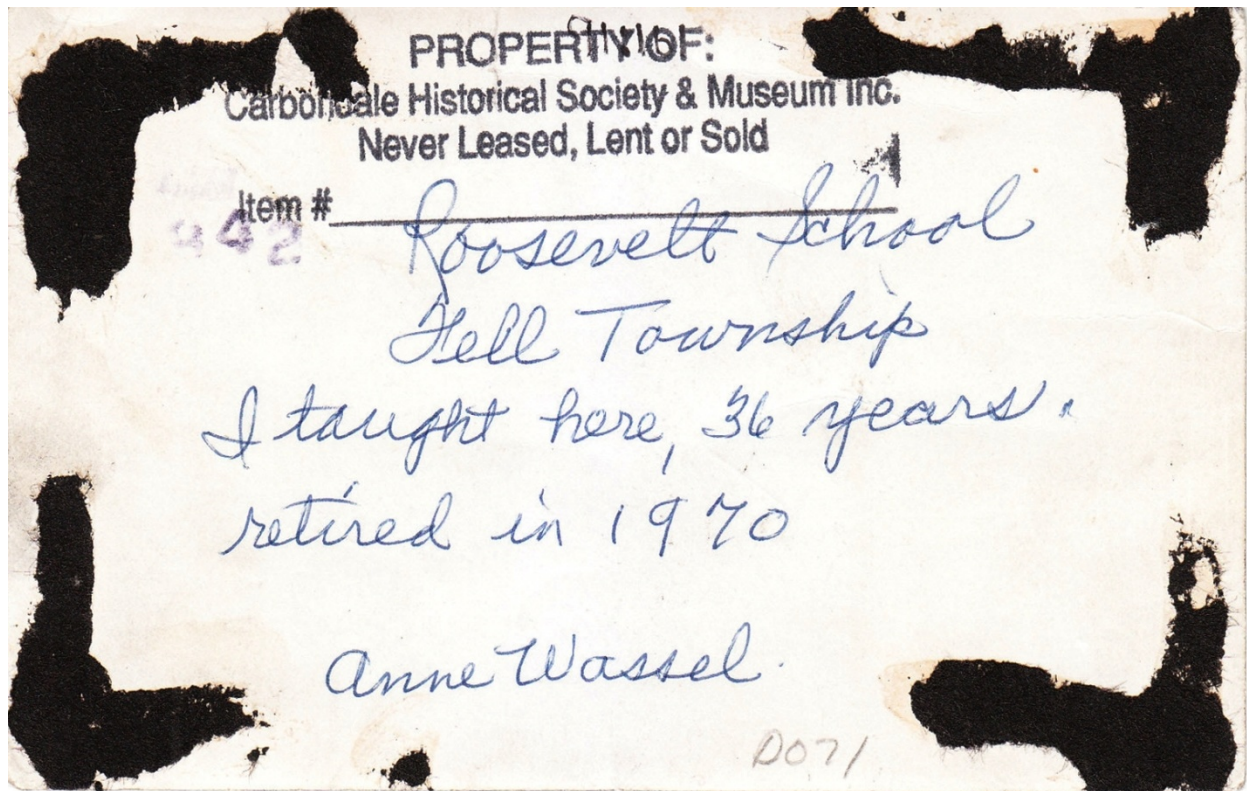 PROPERTY OF:
Carbondale Historical Society & Museum Inc.
Never Leased, Lent or Sold
Item #
442
Roosevelt School
Fell Township
I taught here, 36 years.
retired in 1970
Anne Wassel.
D071